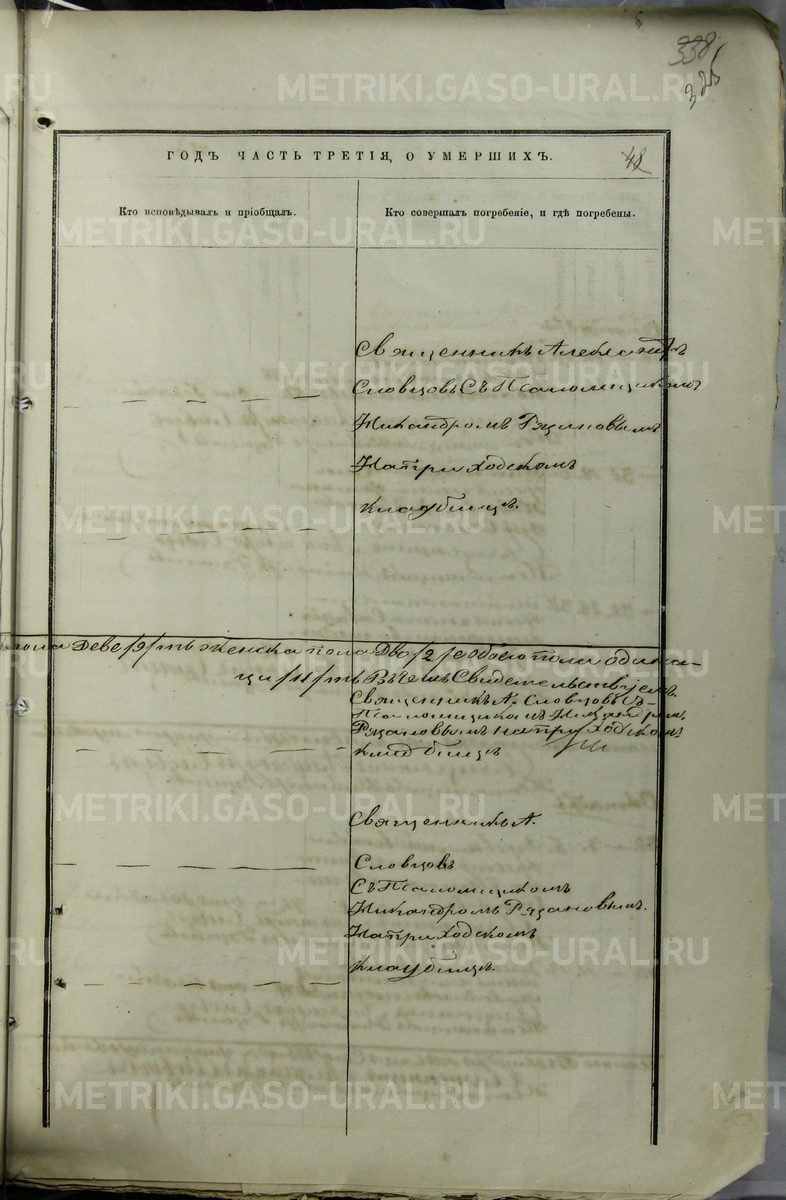 338
325
ГОДЪ ЧАСТЬ ТРЕТІЯ, О УМЕРШИХЪ.
48
Кто исповѣдывалъ и пріобщалъ.
Кто совершалъ погребеніе, и гдѣ погребены.
Священникъ Александръ
Словцовъ съ Псаломщикомъ
Никандромъ Рязановымъ
На приходскомъ
кладбищѣ.
пола деве/9/ть женска пола Два/2/ а обоего пола одина-
ци/11/ть Въ чемъ Свидетельствуемъ
Священникъ А. Словцовъ съ
Псаломщикомъ Никандромъ
Рязановымъ на приходскомъ
кладбищѣ
Священникъ А.
Словцовъ
Съ Псаломщикомъ
Никандромъ Рязановымъ.
На приходскомъ
кладбищѣ.
METRIKI.GASO-URAL.RU